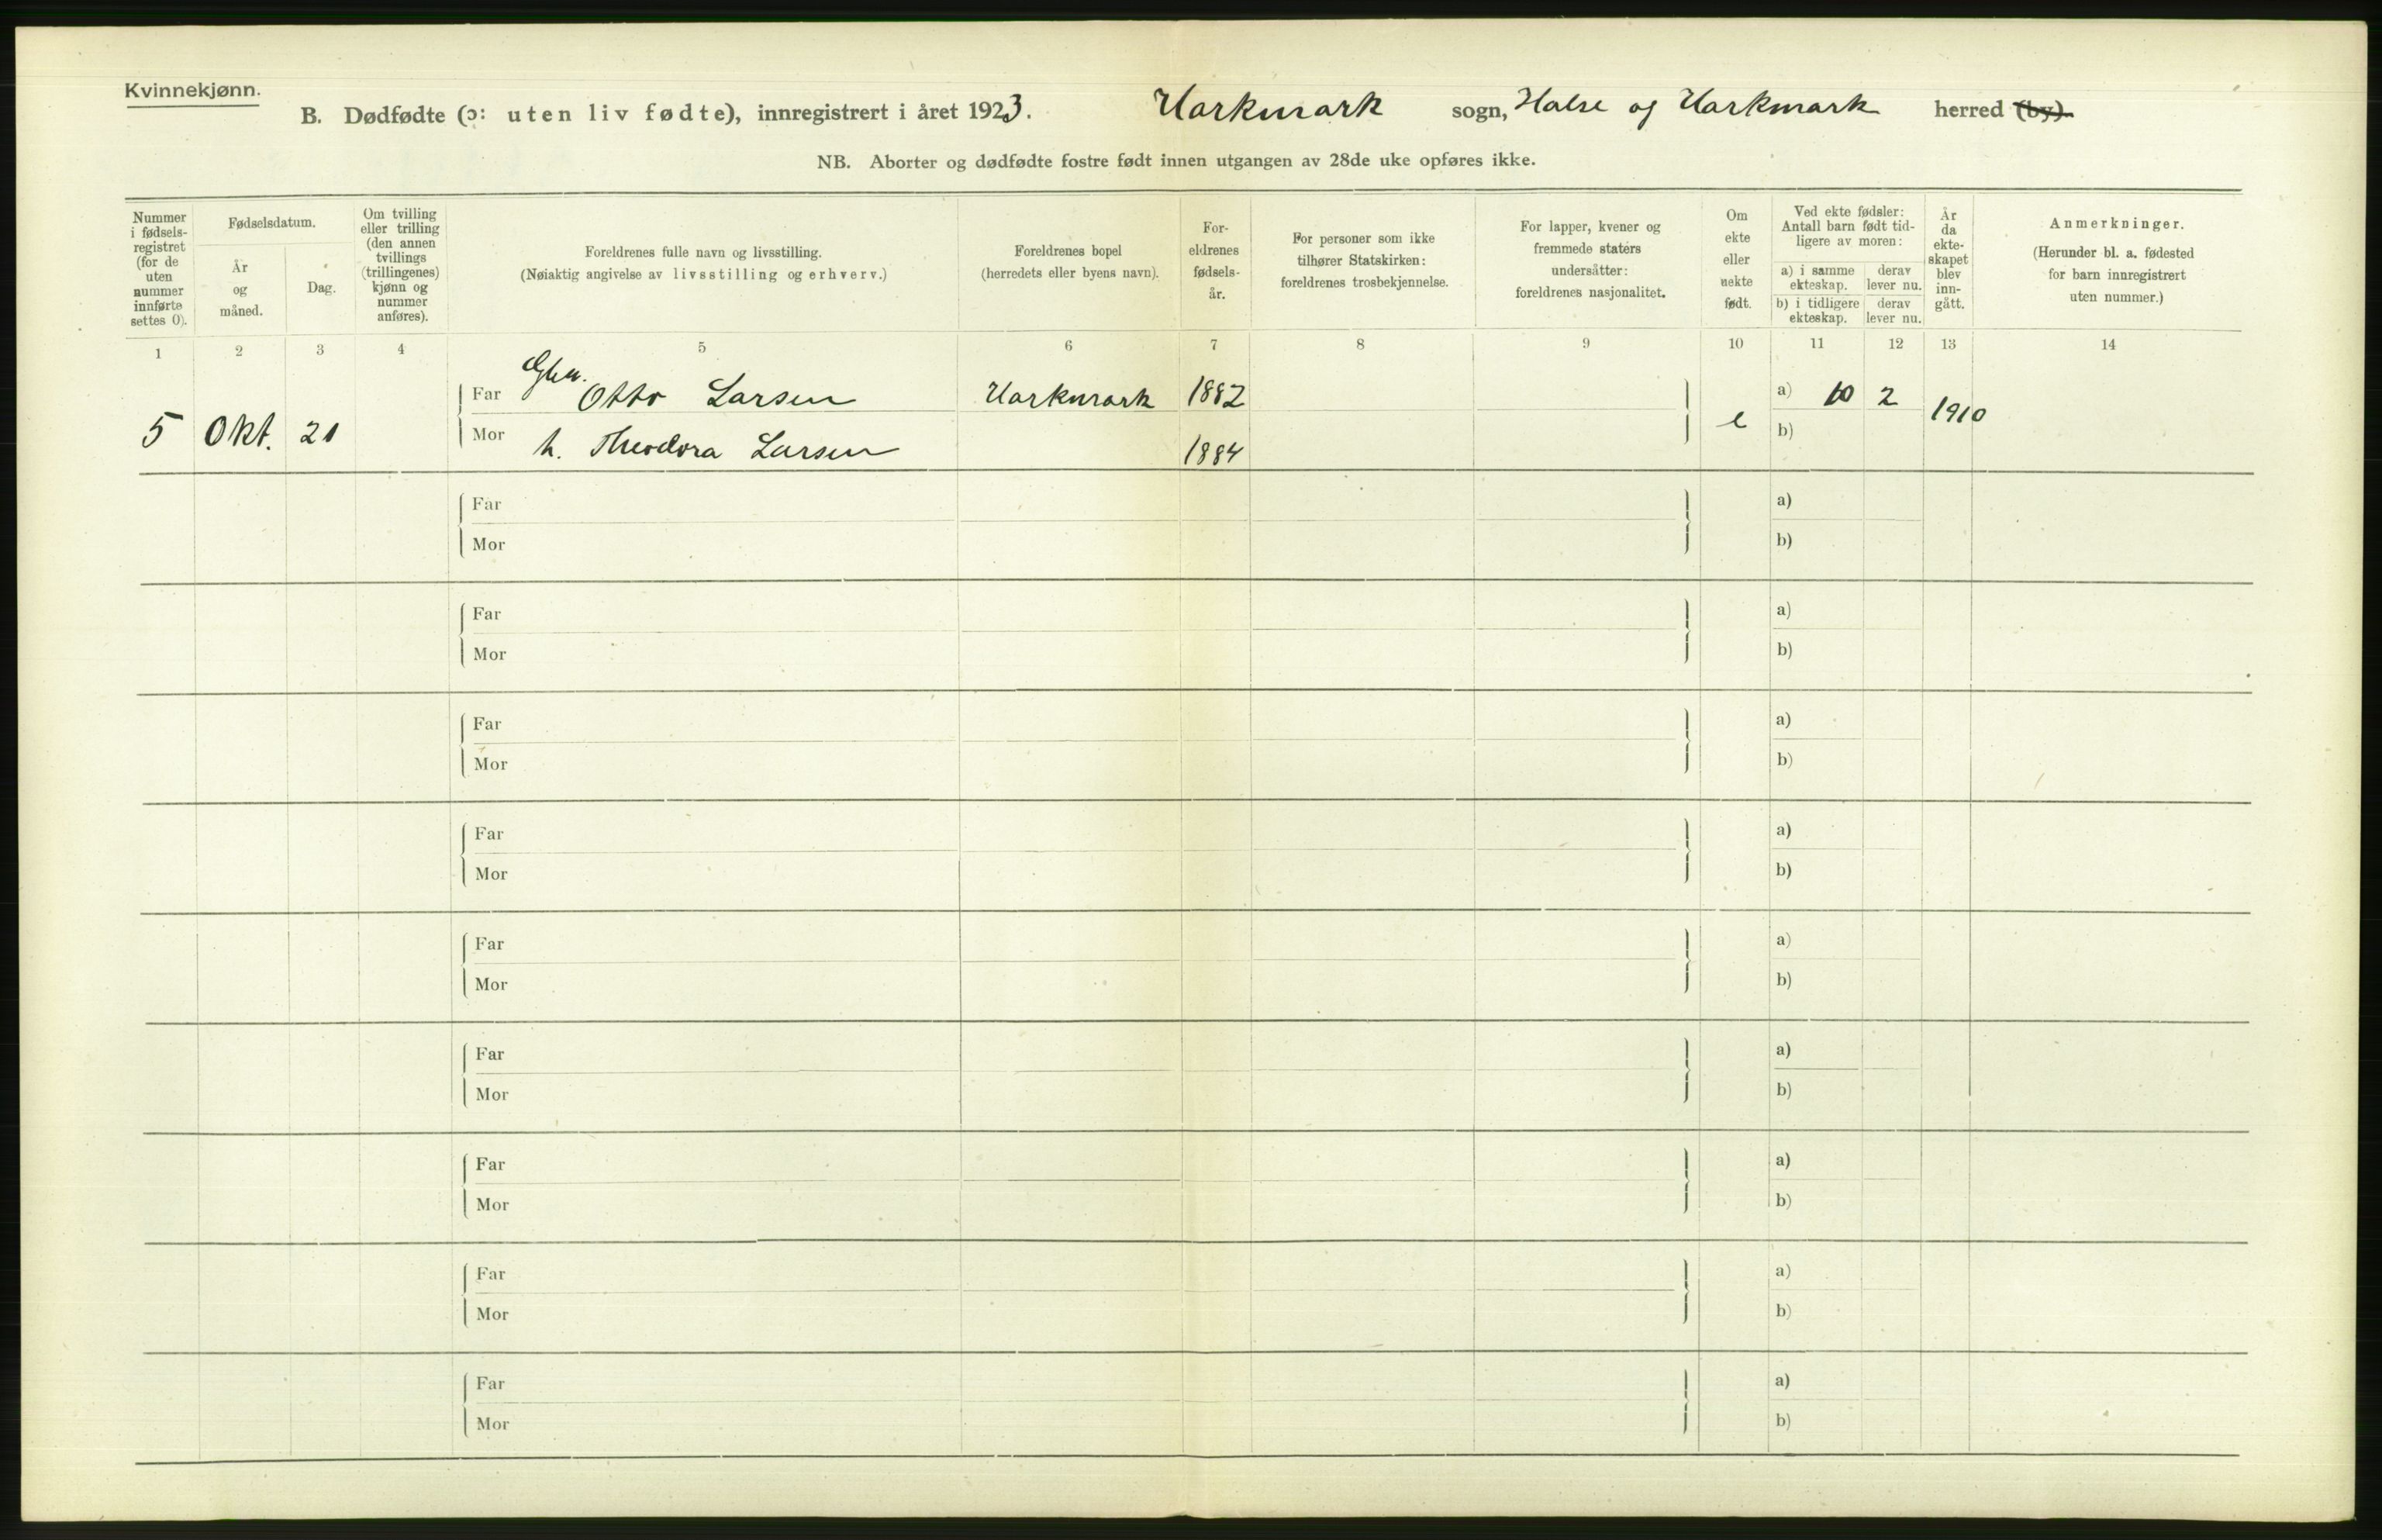 Kvinnekjønn.
B. Dødfødte (ɔ: uten liv fødte), innregistrert i året 1923. Harkmark sogn, Halse og Harkmark herred (by).
NB. Aborter og dødfødte fostre født innen utgangen av 28de uke opføres ikke.
Nummer i fødsels-registret (for de uten nummer innførte settes 0).
Fødselsdatum.
År og måned.
Dag.
Om tvilling eller trilling (den annen tvillings (trillingenes) kjønn og nummer anføres).
Foreldrenes fulle navn og livsstilling.
(Nøiaktig angivelse av livsstilling og erhverv.)
Foreldrenes bopel
(herredets eller byens navn).
For-eldrenes fødsels-år.
For personer som ikke tilhører Statskirken: foreldrenes trosbekjennelse.
For lapper, kvener og fremmede staters undersåtter: foreldrenes nasjonalitet.
Om ekte eller uekte født.
Ved ekte fødsler: Antall barn født tid-ligere av moren:
a) i samme ekteskap.
derav lever nu.
b) i tidligere ekteskap.
derav lever nu.
År da ekte-skapet blev inn-gått.
Anmerkninger.
(Herunder bl. a. fødested for barn innregistrert uten nummer.)
1 2 3 4 5 6 7 8 9 10 11 12 13 14
Far Otto Larsen Harkmark 1882 a) 10 2
5 Okt. 21 Mor h. Theodora Larsen 1884 e b) 1910
Far a)
Mor b)
Far a)
Mor b)
Far a)
Mor b)
Far a)
Mor b)
Far a)
Mor b)
Far a)
Mor b)
Far a)
Mor b)
Far a)
Mor b)
Far a)
Mor b)